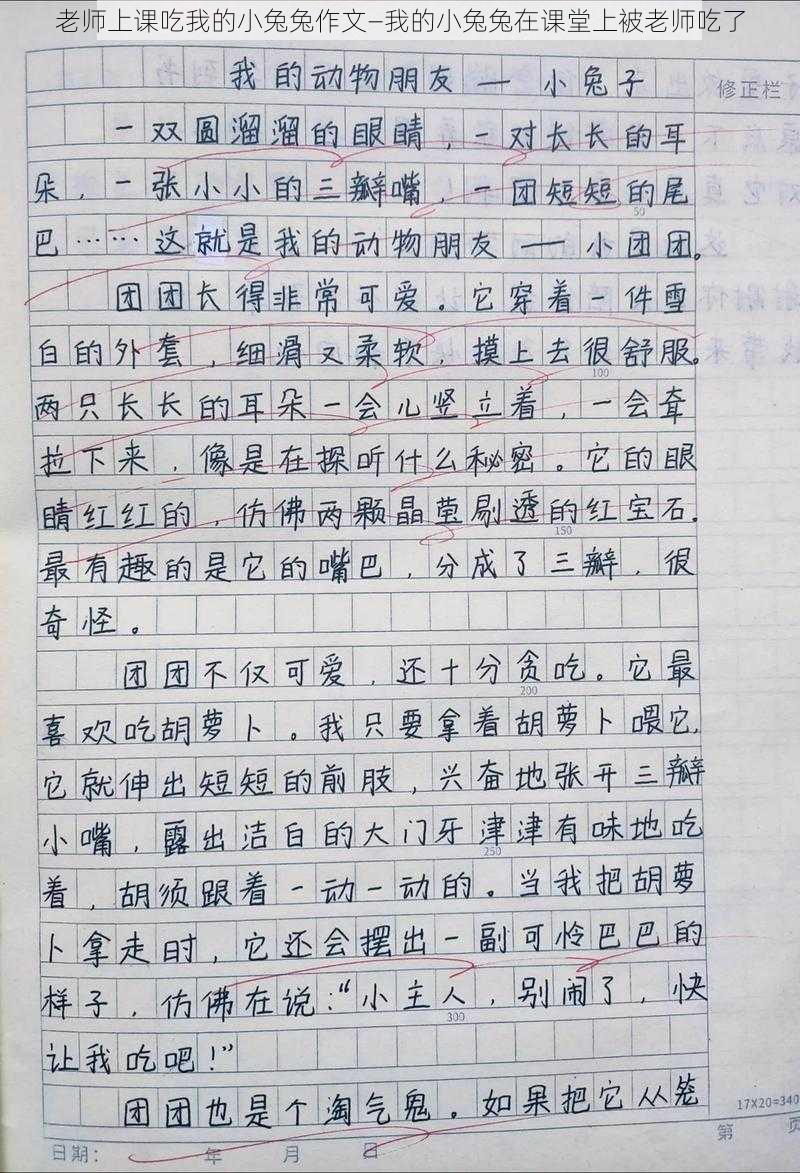 老师上课吃我的小兔兔作文—我的小兔兔在课堂上被老师吃了
我的动物朋友——小兔子
修正栏
一双圆溜溜的眼睛，一对长长的耳
朵，一张小小的三瓣嘴，一团短短的尾
50
巴……这就是我的动物朋友——小团团。
团团长得非常可爱。它穿着一件雪
白的外套，细滑又柔软，摸上去很舒服。
100
两只长长的耳朵一会儿竖立着，一会耷
拉下来，像是在探听什么秘密。它的眼
睛红红的，仿佛两颗晶莹剔透的红宝石。
150
最有趣的是它的嘴巴，分成了三瓣，很
奇怪。
团团不仅可爱，还十分贪吃。它最
200
喜欢吃胡萝卜。我只要拿着胡萝卜喂它，
它就伸出短短的前肢，兴奋地张开三瓣
小嘴，露出洁白的大门牙津津有味地吃
250
着，胡须跟着一动一动的。当我把胡萝
卜拿走时，它还会摆出一副可怜巴巴的
样子，仿佛在说：“小主人，别闹了，快
300
让我吃吧！”
团团也是个淘气鬼。如果把它从笼
17X20=340
日期： 年 月 日
第 页